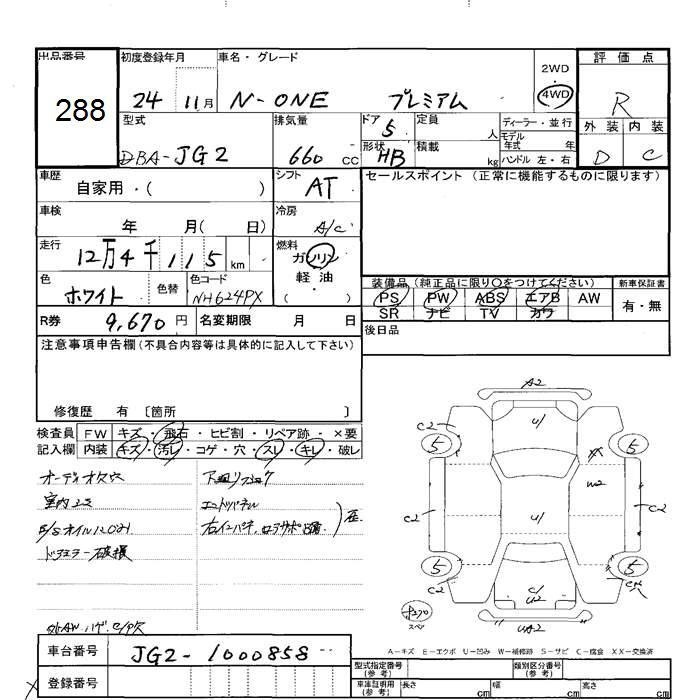 出品番号
288
初度登録年月
24 11月
車名・グレード
N-ONE プレミアム
2WD
4WD
評価点
R
外装 内装
D C
型式
DBA-JG2
排気量
660 cc
ドア 5
形状 HB
定員 人
積載 kg
ディーラー・並行
モデル年式 年
ハンドル 左・右
車歴
自家用・( )
シフト
AT
セールスポイント (正常に機能するものに限ります)
車検
年 月( 日)
冷房
A/C
走行
12万4千115 km
燃料
ガソリン
軽油
( )
色
ホワイト
色替
色コード
NH624PX
装備品(純正品に限り○をつけてください)
PS PW ABS エアB AW
SR ナビ TV カワ
新車保証書
有・無
R券 9,670円
名変期限 月 日
後日品
注意事項申告欄(不具合内容等は具体的に記入して下さい)
修復歴 有 〔箇所 〕
検査員記入欄
FW キズ・飛石・ヒビ割・リペア跡・×要
内装 キズ・汚レ・コゲ・穴・スレ・キレ・破レ
オーディオ欠穴
ドアミラー破損
エンドパネル
A2
C2
5
5
U/
W2
C2
U/
C2
5
5
C2
C/
U2
UA2
スペア
A-キズ E-エクボ U-凹み W-補修跡 S-サビ C-腐食 XX-交換済
車台番号
JG2-1000858
登録番号
型式指定番号(参考)
類別区分番号(参考)
車庫証明用(参考) 長さ cm 幅 cm 高さ cm